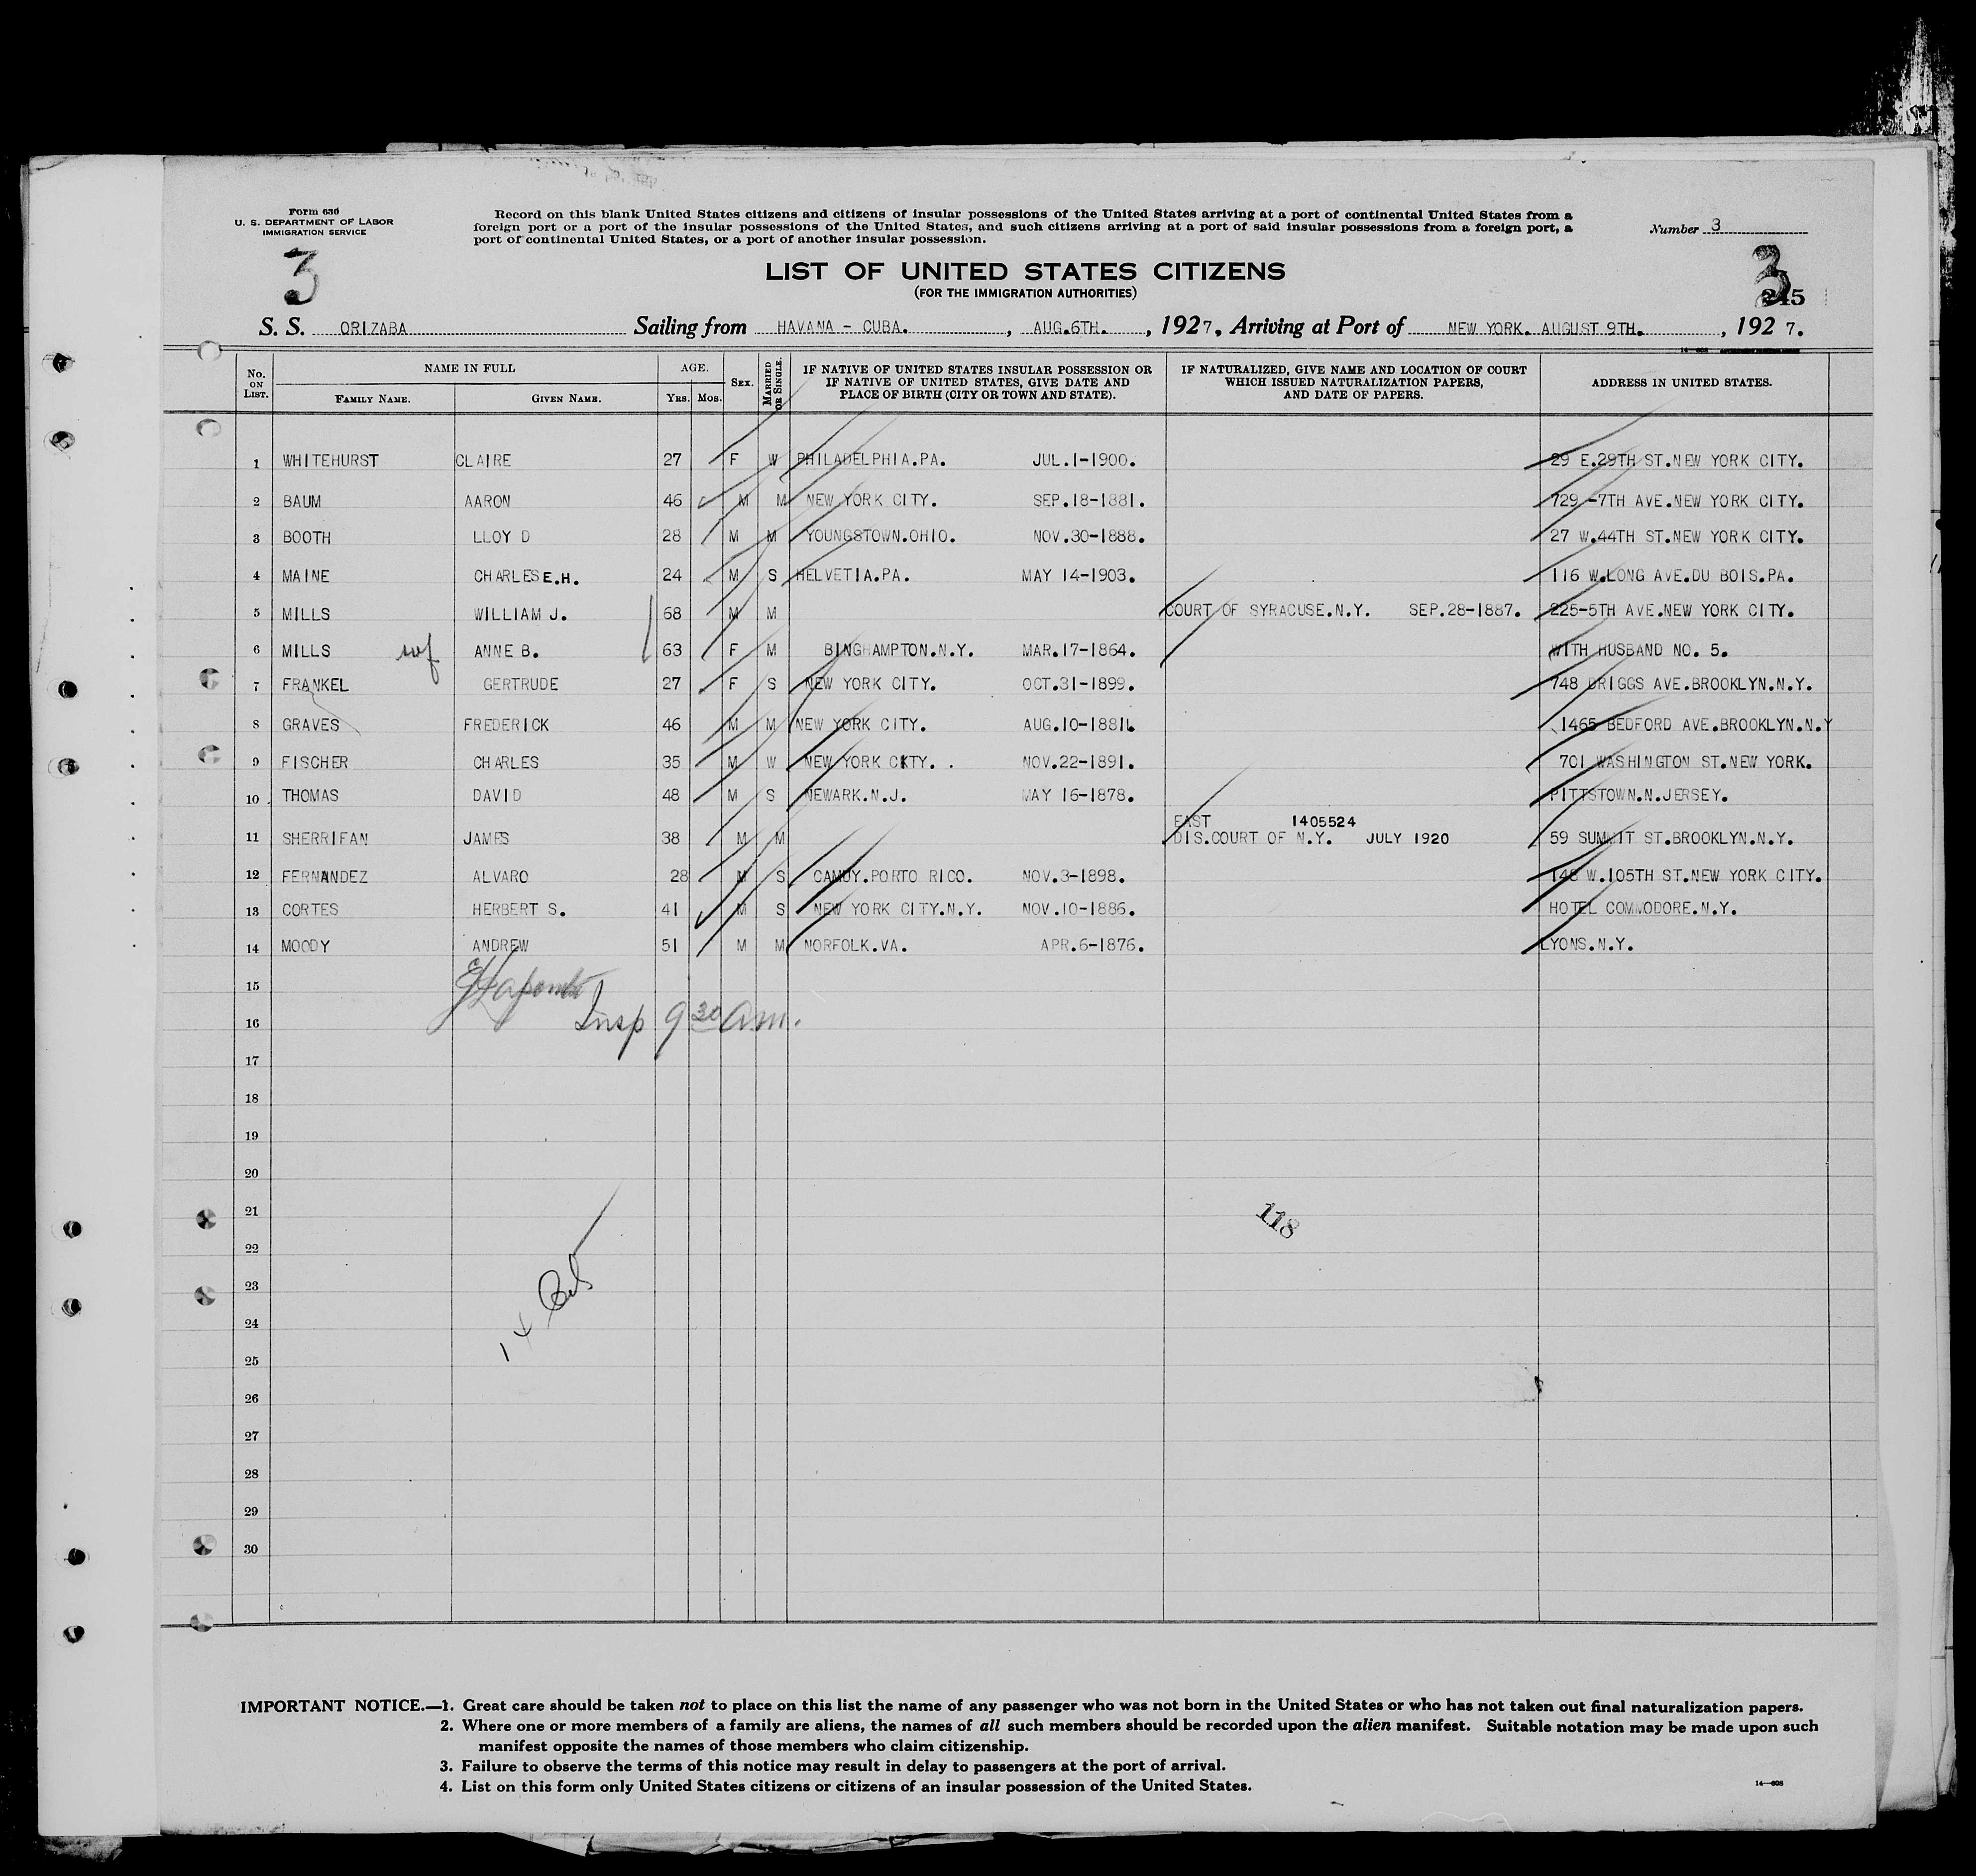 Form 630
U. S. DEPARTMENT OF LABOR
IMMIGRATION SERVICE
Record on this blank United States citizens and citizens of insular possessions of the United States arriving at a port of continental United States from a
foreign port or a port of the insular possessions of the United States, and such citizens arriving at a port of said insular possessions from a foreign port, a
port of continental United States, or a port of another insular possession.
Number 3
3
LIST OF UNITED STATES CITIZENS
(FOR THE IMMIGRATION AUTHORITIES)
3
245
S. S. ORIZABA Sailing from HAVANA - CUBA. , AUG.6TH. , 1927, Arriving at Port of NEW YORK. AUGUST 9TH. , 1927.
No. ON LIST. NAME IN FULL AGE. SEX. MARRIED OR SINGLE. IF NATIVE OF UNITED STATES INSULAR POSSESSION OR IF NATIVE OF UNITED STATES, GIVE DATE AND PLACE OF BIRTH (CITY OR TOWN AND STATE). IF NATURALIZED, GIVE NAME AND LOCATION OF COURT WHICH ISSUED NATURALIZATION PAPERS, AND DATE OF PAPERS. ADDRESS IN UNITED STATES.
FAMILY NAME. GIVEN NAME. YRS. MOS.
1 WHITEHURST CLAIRE 27 F W PHILADELPHIA.PA. JUL.1-1900. 29 E.29TH ST.NEW YORK CITY.
2 BAUM AARON 46 M M NEW YORK CITY. SEP.18-1881. 729 -7TH AVE.NEW YORK CITY.
3 BOOTH LLOY D 28 M M YOUNGSTOWN.OHIO. NOV.30-1888. 27 W.44TH ST.NEW YORK CITY.
4 MAINE CHARLES E.H. 24 M S HELVETIA.PA. MAY 14-1903. 116 W.LONG AVE.DU BOIS.PA.
5 MILLS WILLIAM J. 68 M M COURT OF SYRACUSE.N.Y. SEP.28-1887. 225-5TH AVE.NEW YORK CITY.
6 MILLS ANNE B. 63 F M BINGHAMPTON.N.Y. MAR.17-1864. WITH HUSBAND NO. 5.
7 FRANKEL GERTRUDE 27 F S NEW YORK CITY. OCT.31-1899. 748 DRIGGS AVE.BROOKLYN.N.Y.
8 GRAVES FREDERICK 46 M M NEW YORK CITY. AUG.10-1881. 1465 BEDFORD AVE.BROOKLYN.N.Y
9 FISCHER CHARLES 35 M W NEW YORK CITY. . NOV.22-1891. 701 WASHINGTON ST.NEW YORK.
10 THOMAS DAVID 48 M S NEWARK.N.J. MAY 16-1878. PITTSTOWN.N.JERSEY.
EAST 1405524
11 SHERRIFAN JAMES 38 M M DIS.COURT OF N.Y. JULY 1920 59 SUMMIT ST.BROOKLYN.N.Y.
12 FERNANDEZ ALVARO 28 M S CAMUY.PORTO RICO. NOV.3-1898. 148 W.105TH ST.NEW YORK CITY.
13 CORTES HERBERT S. 41 M S NEW YORK CITY.N.Y. NOV.10-1886. HOTEL COMMODORE.N.Y.
14 MOODY ANDREW 51 M M NORFOLK.VA. APR.6-1876. LYONS.N.Y.
15
Insp 9 30 am.
16
17
18
19
20
21
118
22
23
24
14
25
26
27
28
29
30
IMPORTANT NOTICE.—1. Great care should be taken not to place on this list the name of any passenger who was not born in the United States or who has not taken out final naturalization papers.
2. Where one or more members of a family are aliens, the names of all such members should be recorded upon the alien manifest. Suitable notation may be made upon such
manifest opposite the names of those members who claim citizenship.
3. Failure to observe the terms of this notice may result in delay to passengers at the port of arrival.
4. List on this form only United States citizens or citizens of an insular possession of the United States.
14—808